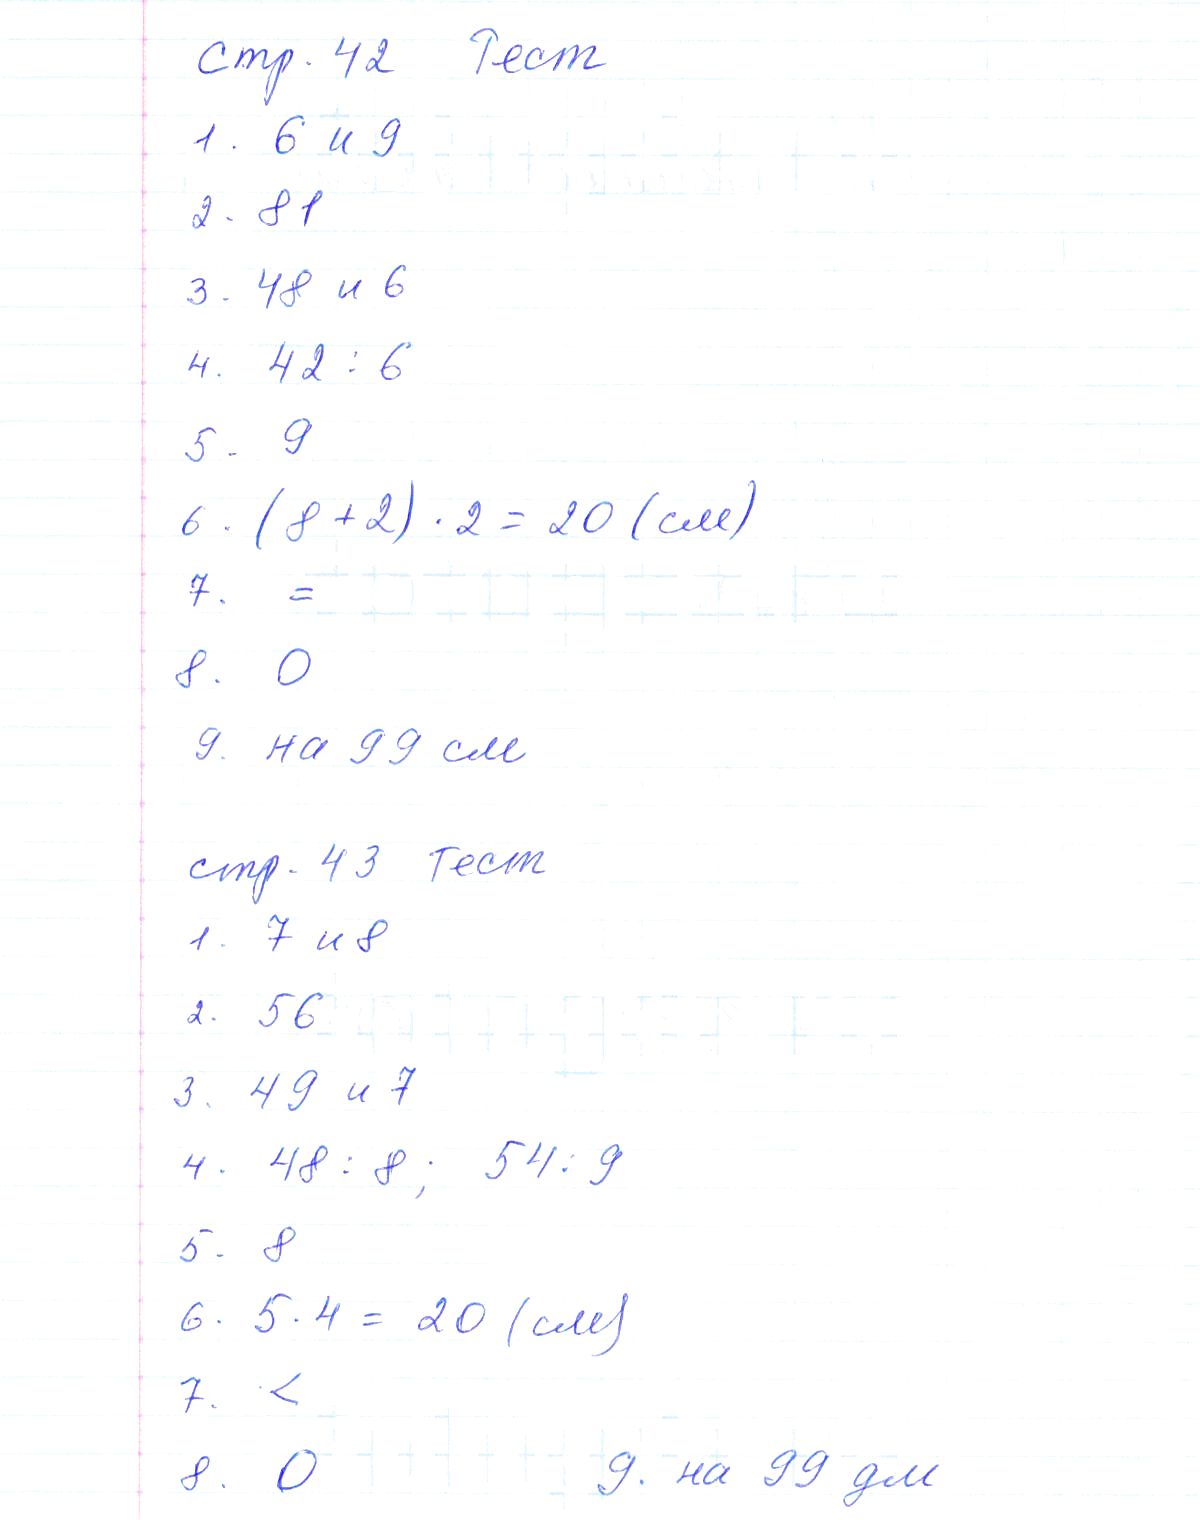 Стр. 42 Тест
1. 6 и 9
2. 81
3. 48 и 6
4. 42 : 6
5. 9
6. (8+2) · 2 = 20 (см)
7. =
8. 0
9. на 99 см
стр. 43 Тест
1. 7 и 8
2. 56
3. 49 и 7
4. 48 : 8; 54 : 9
5. 8
6. 5 · 4 = 20 (см)
7. <
8. 0 9. на 99 дм